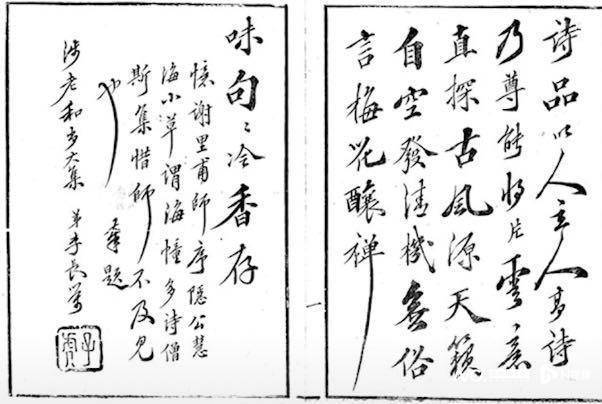 詩品以人立人高詩
乃尊能將片雲意
直探古風源天籟
自空發清機無俗
言梅花釀禪
味句〻冷香存
憶謝里甫師序隱公慧
海小草謂海幢多詩僧
斯集惜師不及見
也
奉題
涉老和尚大集 弟李長榮